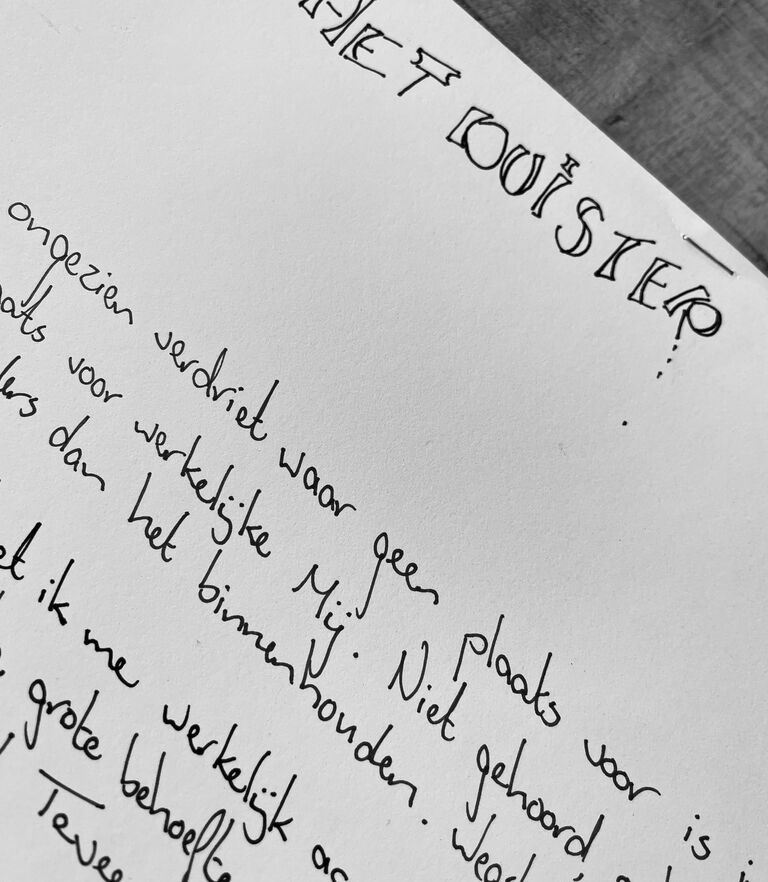 HET DUISTER
ongezien verdriet waar geen plaats voor is
voor werkelijke Mij. Niet gehoord
dan het binnenhouden.
ik me werkelijk
grote behoefte